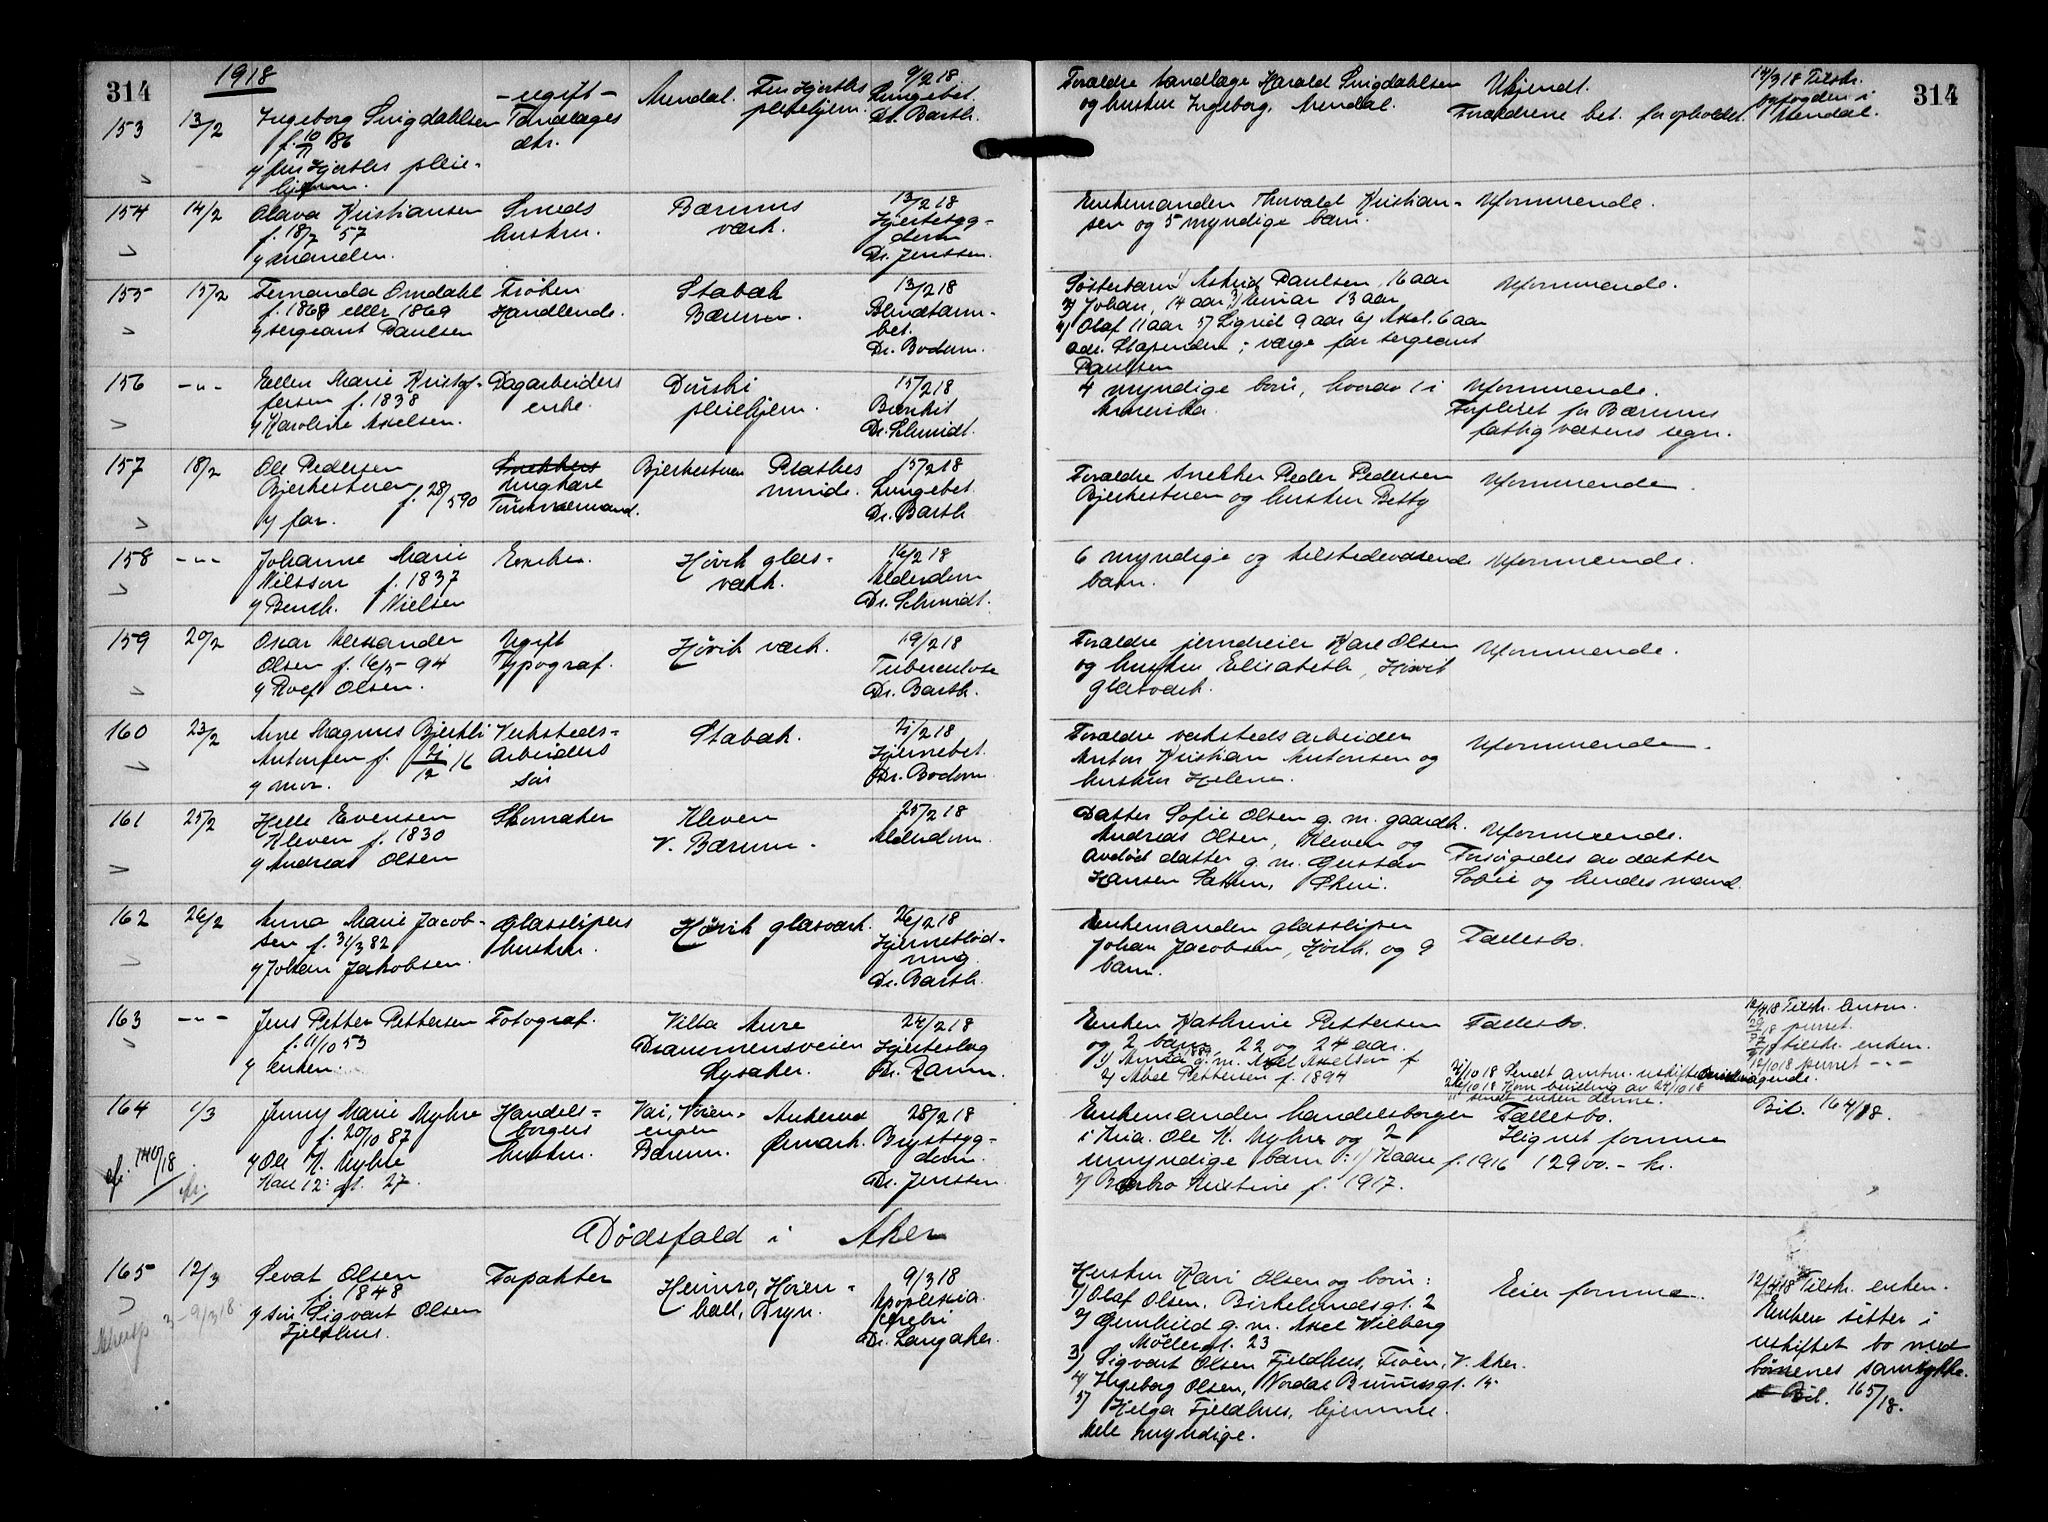 314
1918
314
153
13/2
Ingeborg Svigdahlsen
f. 10/11 86
pleie-
hjem.
- ugift -
Tandlæges
dtr.
Arendal.
pleiehjem.
9/2 18
Lungebet.
Dr. Barth.
Forældre tandlæge Harald Svigdahlsen
og hustru Ingeborg, Arendal.
Ukjendt.
Forældrene bet. for opholdet.
14/3 18 Tilskr.
byfogden i
Arendal.
154
14/2
Olava Kristiansen
f. 18/7 57
v/ manden.
Smeds
hustru.
Bærums
værk.
13/2 18
Hjertesyg-
dom
Dr. Jenssen.
Enkemanden Thorvald Kristian-
sen og 5 myndige barn.
Uformuende.
155
15/2
Fernanda Omdahl
f. 1868 eller 1869
v/ sergeant Paulsen
Frøken
Handlende.
Stabæk
Bærum.
13/2 18
Blindtarm-
bet.
Dr. Bodom.
Søsterbarn 1/ Astrid Paulsen, 16 aar
2/ Johan, 14 aar 3/ Einar 13 aar
4/ Olaf 11 aar 5/ Sigrid 9 aar 6/ Axel, 6 aar
adr. Slependen; værge far sergeant
Paulsen
Uformuende.
156
- " -
Ellen Marie Kristof-
fersen f. 1838
v/ Karoline Axelsen.
Dagarbeiders
enke.
pleiehjem.
15/2 18
Dr. Schmidt.
4 myndige barn, hvorav 1 i
Amerika.
Uformuende.
Forpleiet for Bærums
fattigvæsens regn.
157
18/2
Ole Pedersen
Bjerkestuen
f. 28/5 90
v/ far.
Snekkers
Ungkare
Bjerkestuen
15/2 18
Lungebet.
Dr. Barth
Forældre snekker Peder Pedersen
Bjerkestuen og hustru Betty
Uformuende.
158
- " -
Johanne Marie
Nilsson f. 1837
v/ Bernh. Nielsen
Enke.
Høvik glas-
værk.
16/2 18
Alderdom
Dr. Schmidt.
6 myndige og tilstedeværende
barn.
Uformuende.
159
20/2
Oskar Alexander
Olsen f. 16/5 94
v/ Rolf Olsen.
Ugift
Typograf.
Høvik værk.
19/2 18
Tuberculose
Dr. Barth.
Forældre jerndreier Karl Olsen
og hustru Elisabeth, Høvik
glasværk.
Uformuende.
160
23/2
Arne Magnus Bjerkli
Antonsen f. 21/12 16
v/ mor.
Verksteds-
arbeiders
søn
Stabæk.
21/2 18
Hjernebet.
Dr. Bodom.
Forældre verkstedsarbeider
Anton Kristian Antonsen og
hustru Helene.
Uformuende.
161
25/2
Helle Evensen
Kleven f. 1830
v/ Andreas Olsen
Skomaker
Kleven
V. Bærum.
25/2 18
Alderdom.
Datter Sofie Olsen g. m. gaardb.
Andreas Olsen, Kleven og
avdød datter g. m. Gustav
Hansen Sætern, Skui.
Uformuende.
Forsørgedes av datter
Sofie og hendes mand.
162
26/2
Anna Marie Jacob-
sen f. 31/3 82
v/ Johan Jakobsen.
Glasslipers
hustru.
Høvik glasværk.
26/2 18
Hjerneblød-
ning.
Dr. Barth.
Enkemanden glassliper
Johan Jacobsen, Høvik, og 9
barn.
Fællesbo.
163
- " -
Jens Petter Pettersen
f. 11/10 53
v/ enken.
Fotograf.
Villa Aure
Drammensveien
Lysaker.
24/2 18
Hjerteslag
Dr. Ramm.
Enken Kathrine Pettersen
og 2 barn, 22 og 24 aar.
1/ Anna g. m. Axel Axelsson f
2/ Abel Pettersen f. 1894
Fællesbo.
12/4 18 Tilskr. enken.
purret.
tilskr. enken.
12/10 18 purret - " -
sendt enken denne.
164
1/3
Jenny Marie Myhre
f. 20/10 87
v/ Ole K. Myhre
Karl 12: gt. 27.
Handels-
borgers
hustru.
Bærum.
28/2 18
Brystsyg-
dom.
Dr. Jenssen.
Enkemanden handelsborger
i Kria. Ole K. Myhre og 2
umyndige barn: 1/ Kaare f. 1916
2/ Borbro Kristine f. 1917.
Fællesbo.
Lignet formue
12900.- kr.
Bil. 164/18.
140/18
Dødsfald i Aker
165
12/3
Sevat Olsen
f. 1848
v/ søn Sigvart Olsen
Fjeldhus.
Forpakter
Heimro, Høien-
hall, Bryn.
9/3 18
Apoplexia
cerebri
Dr. Langaker.
Hustru Kari Olsen og barn:
1/ Olaf Olsen, Birkelundsgt. 2
2/ Gunhild g. m. Axel Wilberg
Møllergt. 23
3/ Sigvart Olsen Fjeldhus, Frøen, V. Aker.
4/ Ingeborg Olsen, Nordal Brunsgt. 15
5/ Helga Fjeldhus, hjemme.
Alle myndige.
Eier formue.
12/4 18 Tilskr. enken.
Enken sitter i
uskiftet bo med
børnenes samtykke.
Bil. 165/18.
3 - 9/3 18.